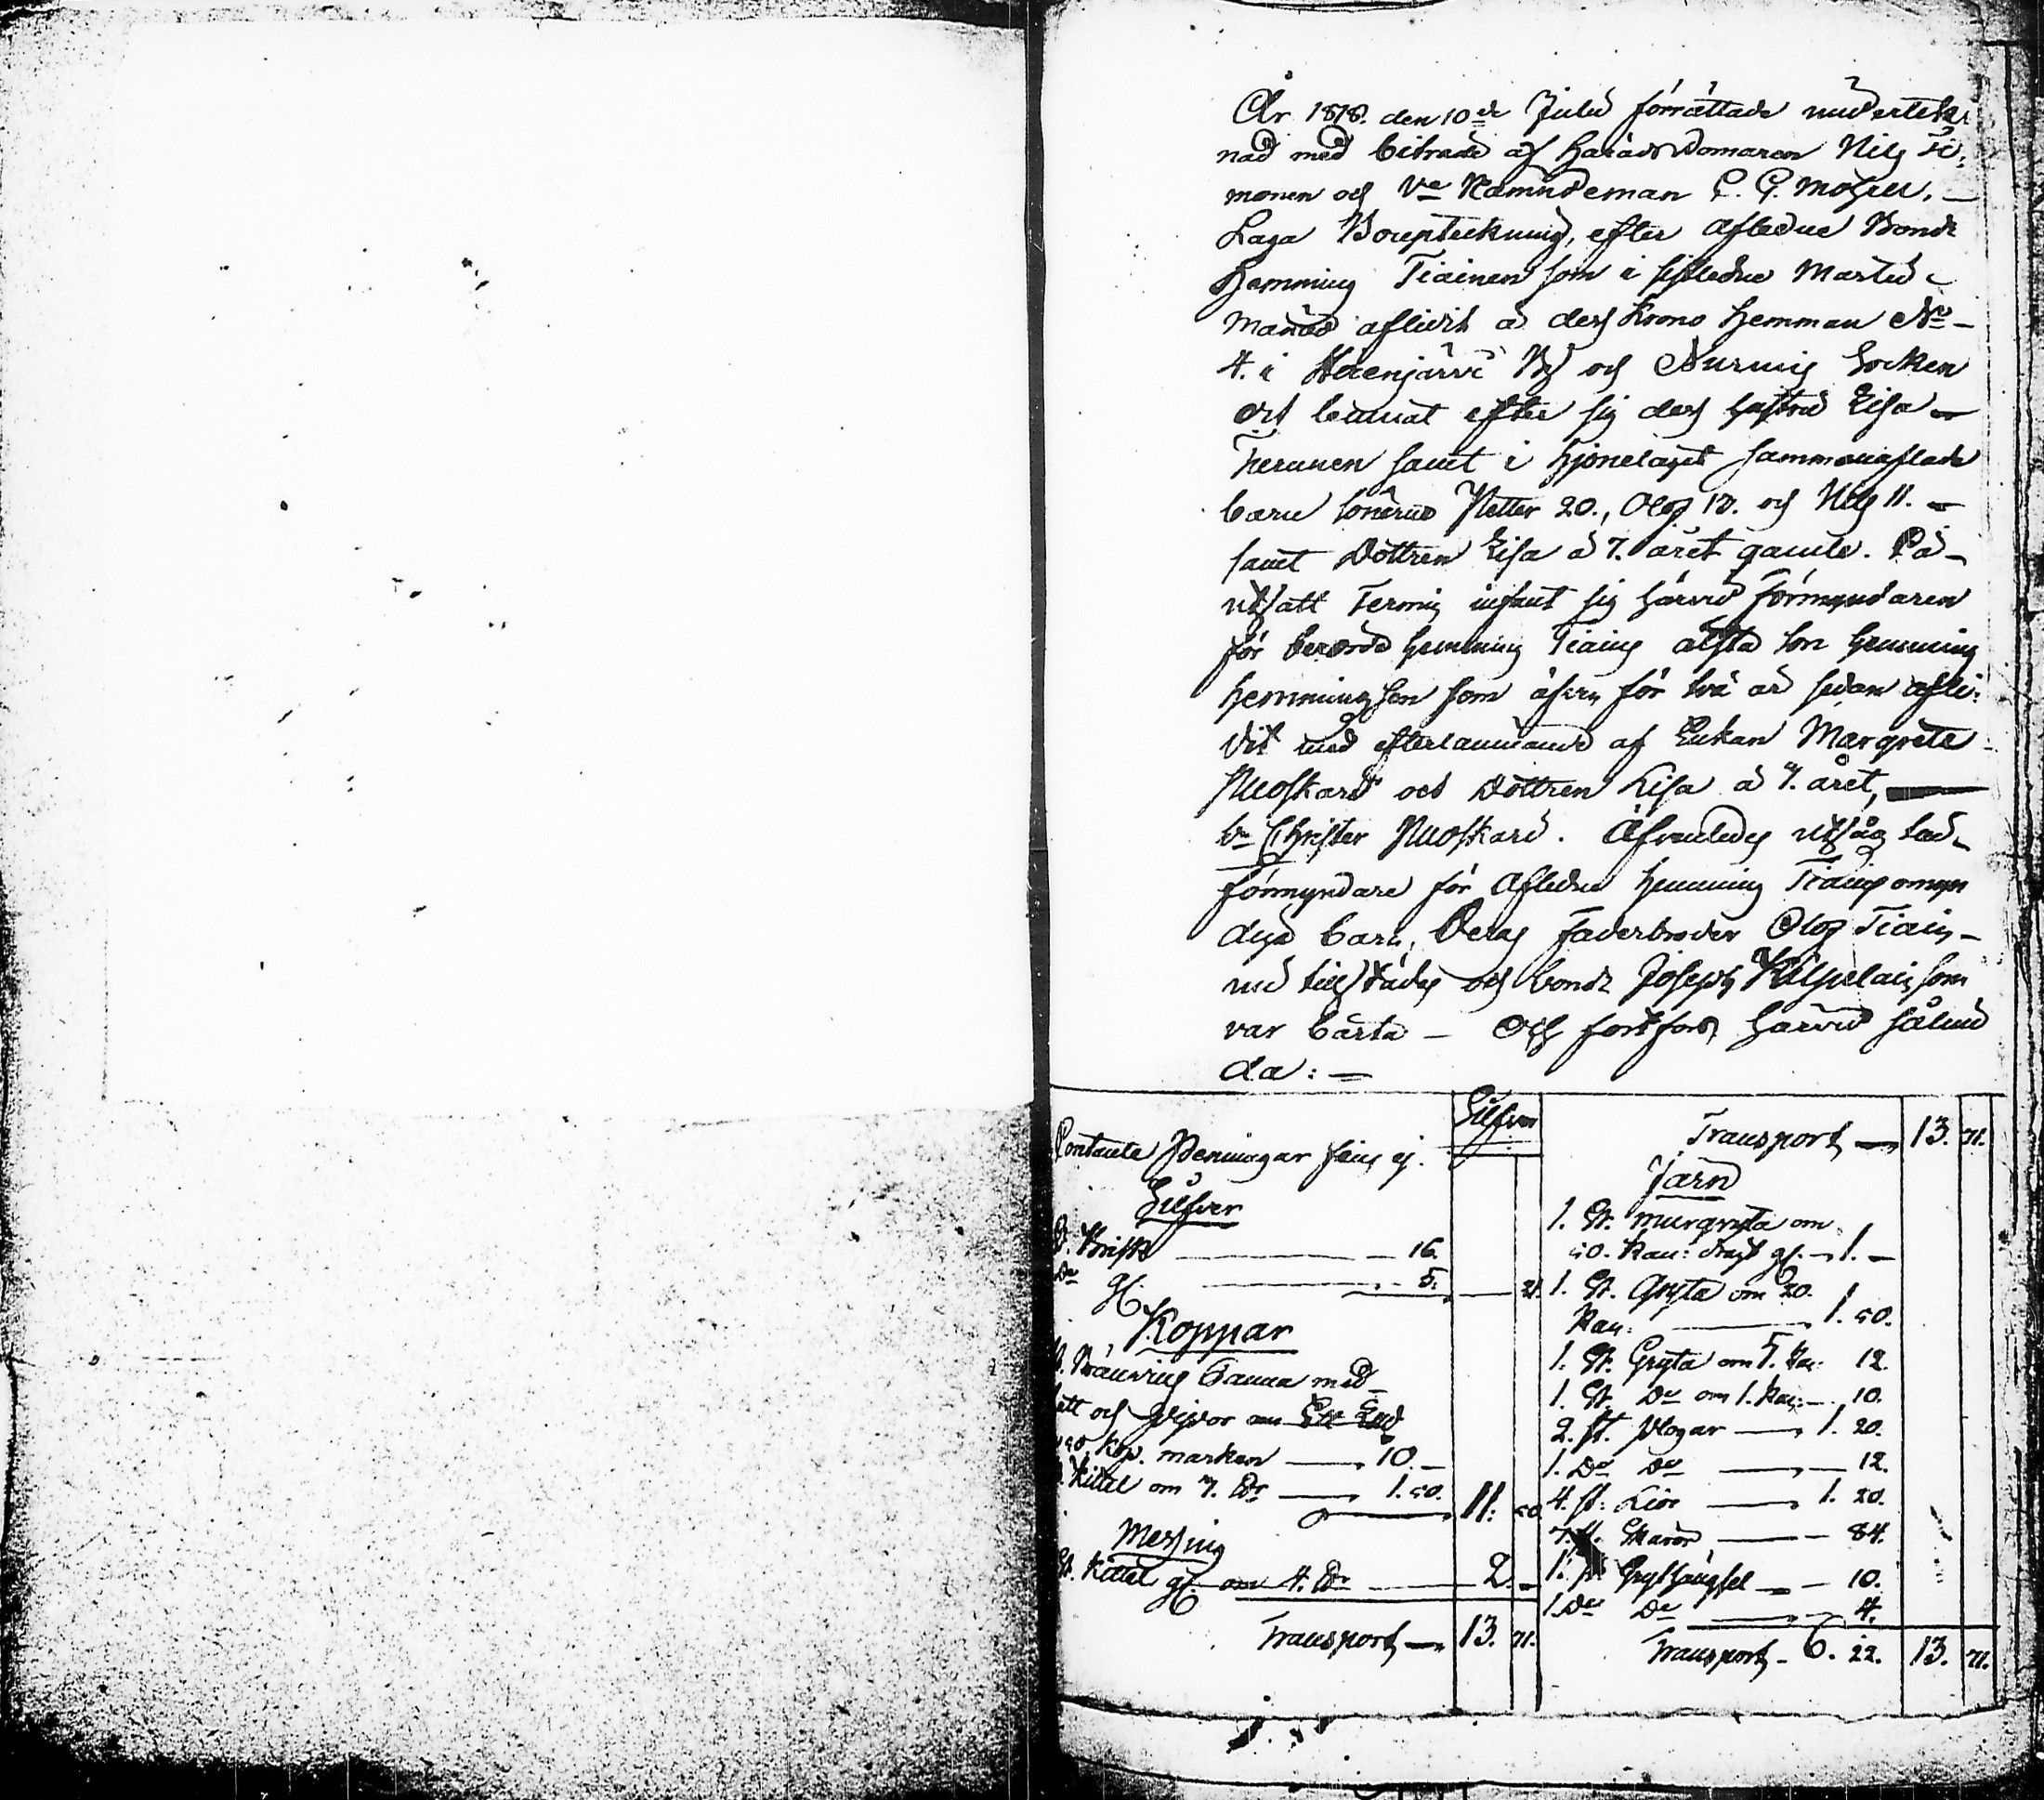 År 1818. den 10de Julii förrättade undertek-
nad med biträde af Häradsdomaren Nils Ti-
monen och Ve Nämndeman C. G. Moses. —
Laga Bouptekning, efter Aflidne Bonde
Hemming Tiainen som i sistledne Martii
Månad aflidit å dess Krono Hemman No —
4. i By och Nurmis Socken
och lämnat efter sig dess Hustru Lisa —
samt i Hjonelaget sammanaflade
barn Sönerne Petter 20., Olof 13. och Nils 11. —
samt Döttren Lisa å 7. året gamle. På —
utsatt Termin infant sig härvid Förmyndaren
för berörde Hemming Tiains älsta Son Hemming
Hemmingsson som äfven för två år sedan afli-
dit med efterlämnande af Enkan Margreta
Puoskari och Döttren Lisa å 4. året,
Bn Christer Puoskari. Äfvenledes utsågs
Förmyndare för Aflidne Hemming Tiains omyn
diga barn, Deras Faderbroder Olof Tiain —
och bonde Joseph Kilpelain, som
var bärta — Och fortfors härvid sålun
da: —
Silfver
Contante Penningar fans ej.
Silfver
Brisk — 16.
Do gl. — 5. — 21.
Koppar
Bränvins Panna med
hatt och Pipor om
50. Kop. marken — 10. —
Kittel om 7. — 1. 50. 11. 50
Messing
St. Kittel gl. om 4. — 2. —
Transport — 13. 71.
Transport — 13. 71.
Järn
1. St. murgryta om
50. Kan: gl. — 1. —
1. St. Gryta om 20.
Kan: — 1. 50.
1. St. Gryta om 5. Kan: 12.
1. St. Do om 1. Kan: — 10.
2. st. Plogar — 1. 20.
1. Do Do — 12.
4. st: Liar — 1. 20.
7. st. Skäror — 84.
1. st. Grythängsel — 10.
1. Do Do — 4.
Transport — 6. 22. 13. 71.